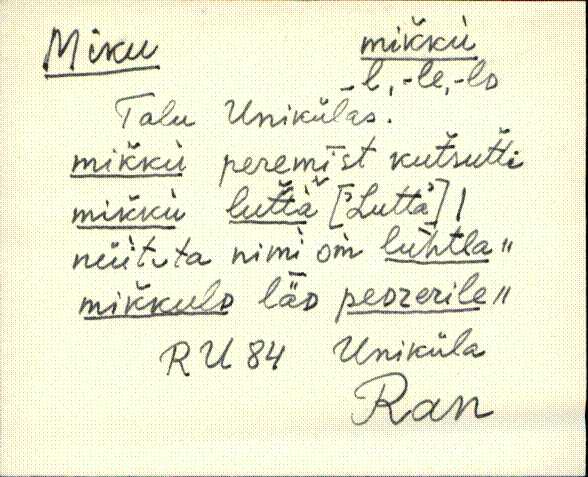 Miku mik̆kù
-l, -le, -lᴅ
Talu Unikülas.
mik̆kù peremīst kut̆sut̆ti
mik̆kù lut̆tà ["Lutta"] |
nüit̀ta nimi om̀ lùhtla "
mik̆kulᴅ läᴅ peᴅzerile "
RU 84 Uniküla
Ran